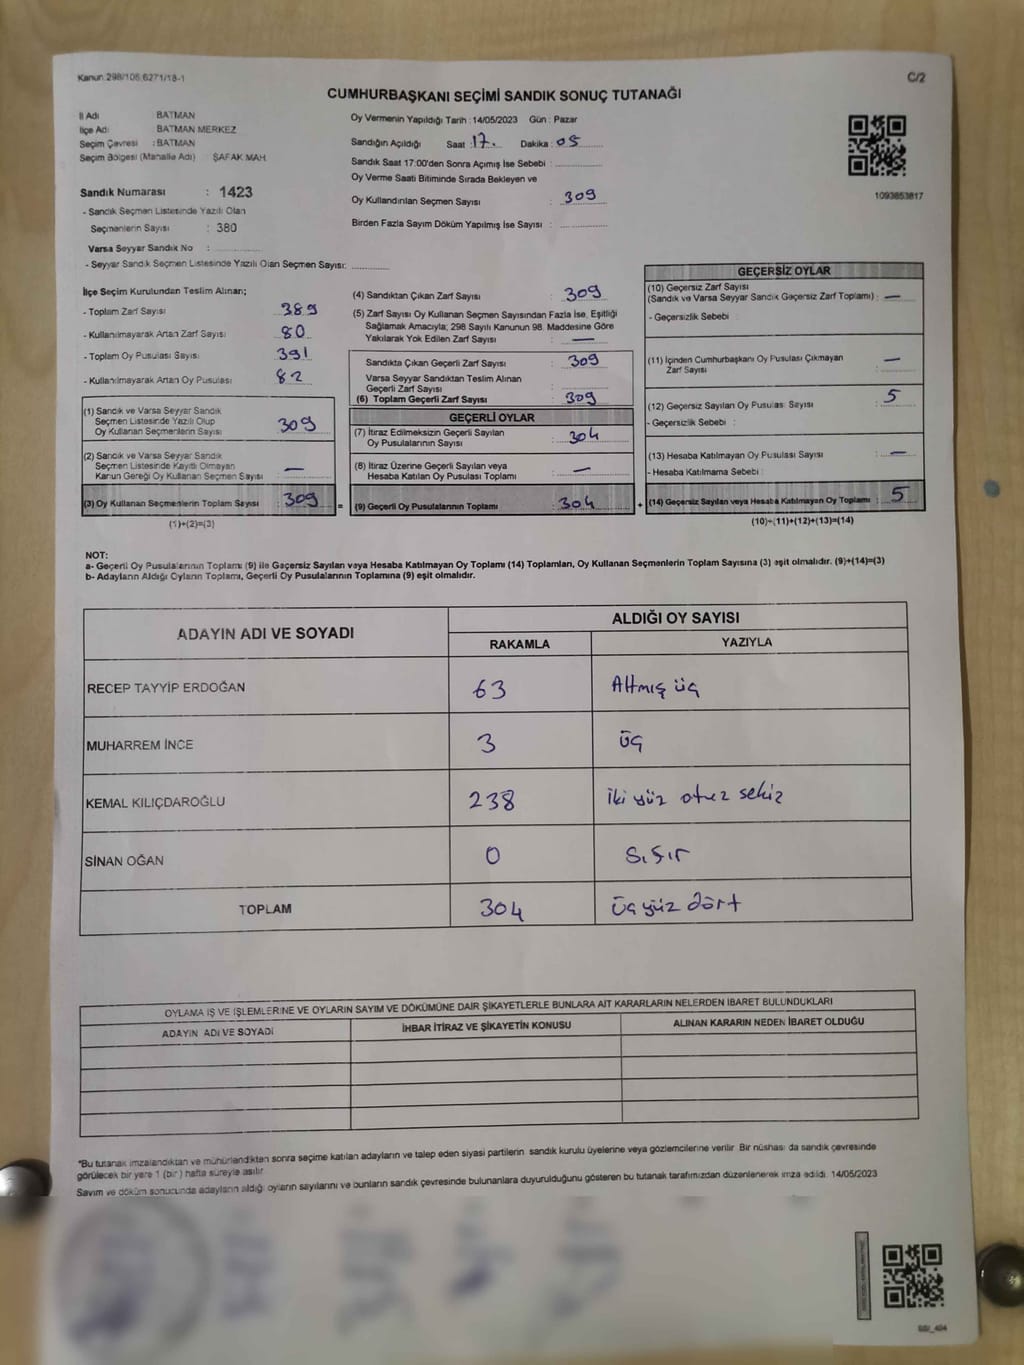 Kanun 298/106 6271/18-1
C/2
CUMHURBAŞKANI SEÇİMİ SANDIK SONUÇ TUTANAĞI
İl Adı BATMAN
İlçe Adı BATMAN MERKEZ
Seçim Çevresi : BATMAN
Seçim Bölgesi (Mahalle Adı) ŞAFAK MAH.
Sandık Numarası : 1423
- Sandık Seçmen Listesinde Yazılı Olan
Seçmenlerin Sayısı : 380
Varsa Seyyar Sandık No :
- Seyyar Sandık Seçmen Listesinde Yazılı Olan Seçmen Sayısı:
Oy Vermenin Yapıldığı Tarih : 14/05/2023 Gün : Pazar
Sandığın Açıldığı Saat : 17. Dakika : 05
Sandık Saat 17:00'den Sonra Açılmış İse Sebebi :
Oy Verme Saati Bitiminde Sırada Bekleyen ve
Oy Kullandırılan Seçmen Sayısı : 309
Birden Fazla Sayım Döküm Yapılmış İse Sayısı :
1093853817
İlçe Seçim Kurulundan Teslim Alınan;
- Toplam Zarf Sayısı : 389
- Kullanılmayarak Artan Zarf Sayısı : 80
- Toplam Oy Pusulası Sayısı : 391
- Kullanılmayarak Artan Oy Pusulası : 82
(1) Sandık ve Varsa Seyyar Sandık
Seçmen Listesinde Yazılı Olup
Oy Kullanan Seçmenlerin Sayısı : 309
(2) Sandık ve Varsa Seyyar Sandık
Seçmen Listesinde Kayıtlı Olmayan
Kanun Gereği Oy Kullanan Seçmen Sayısı : —
(3) Oy Kullanan Seçmenlerin Toplam Sayısı : 309 =
(1)+(2)=(3)
(4) Sandıktan Çıkan Zarf Sayısı : 309
(5) Zarf Sayısı Oy Kullanan Seçmen Sayısından Fazla İse, Eşitliği
Sağlamak Amacıyla; 298 Sayılı Kanunun 98. Maddesine Göre
Yakılarak Yok Edilen Zarf Sayısı : —
Sandıkta Çıkan Geçerli Zarf Sayısı : 309
Varsa Seyyar Sandıktan Teslim Alınan
Geçerli Zarf Sayısı :
(6) Toplam Geçerli Zarf Sayısı : 309
GEÇERLİ OYLAR
(7) İtiraz Edilmeksizin Geçerli Sayılan
Oy Pusulalarının Sayısı : 304
(8) İtiraz Üzerine Geçerli Sayılan veya
Hesaba Katılan Oy Pusulası Toplamı : —
(9) Geçerli Oy Pusulalarının Toplamı : 304 +
GEÇERSİZ OYLAR
(10) Geçersiz Zarf Sayısı
(Sandık ve Varsa Seyyar Sandık Geçersiz Zarf Toplamı) : —
- Geçersizlik Sebebi :
(11) İçinden Cumhurbaşkanı Oy Pusulası Çıkmayan
Zarf Sayısı : —
(12) Geçersiz Sayılan Oy Pusulası Sayısı : 5
- Geçersizlik Sebebi :
(13) Hesaba Katılmayan Oy Pusulası Sayısı : —
- Hesaba Katılmama Sebebi :
(14) Geçersiz Sayılan veya Hesaba Katılmayan Oy Toplamı : 5
(10)+(11)+(12)+(13)=(14)
NOT:
a- Geçerli Oy Pusulalarının Toplamı (9) ile Geçersiz Sayılan veya Hesaba Katılmayan Oy Toplamı (14) Toplamları, Oy Kullanan Seçmenlerin Toplam Sayısına (3) eşit olmalıdır. (9)+(14)=(3)
b- Adayların Aldığı Oyların Toplamı, Geçerli Oy Pusulalarının Toplamına (9) eşit olmalıdır.
ADAYIN ADI VE SOYADI ALDIĞI OY SAYISI
RAKAMLA YAZIYLA
RECEP TAYYİP ERDOĞAN 63 Altmış üç
MUHARREM İNCE 3 Üç
KEMAL KILIÇDAROĞLU 238 İki yüz otuz sekiz
SİNAN OĞAN 0 Sıfır
TOPLAM 304 Üç yüz dört
OYLAMA İŞ VE İŞLEMLERİNE VE OYLARIN SAYIM VE DÖKÜMÜNE DAİR ŞİKAYETLERLE BUNLARA AİT KARARLARIN NELERDEN İBARET BULUNDUKLARI
ADAYIN ADI VE SOYADI İHBAR İTİRAZ VE ŞİKAYETİN KONUSU ALINAN KARARIN NEDEN İBARET OLDUĞU
*Bu tutanak imzalandıktan ve mühürlendikten sonra seçime katılan adayların ve talep eden siyasi partilerin sandık kurulu üyelerine veya gözlemcilerine verilir. Bir nüshası da sandık çevresinde
görülecek bir yere 1 (bir) hafta süreyle asılır.
Sayım ve döküm sonucunda adayların aldığı oyların sayılarını ve bunların sandık çevresinde bulunanlara duyurulduğunu gösteren bu tutanak tarafımızdan düzenlenerek imza edildi. 14/05/2023